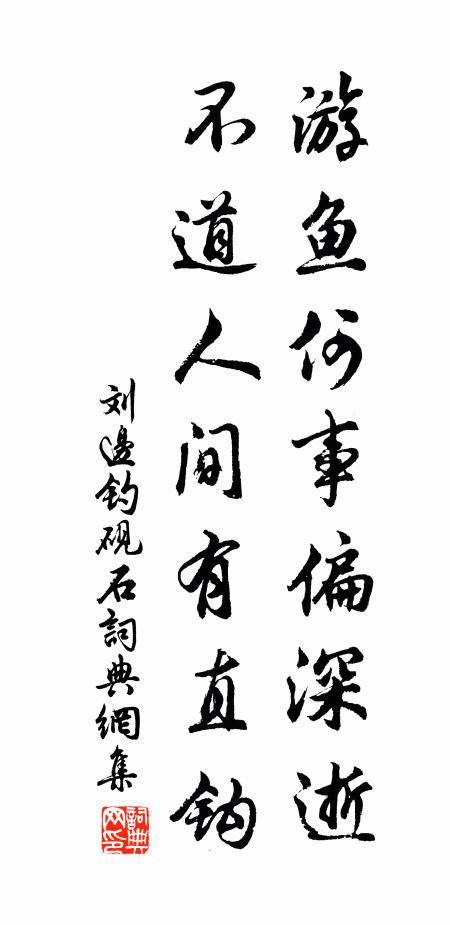 游鱼何事偏深逝
不道人间有直钩
刘邊钓硯石詞典網集
詞典
网印